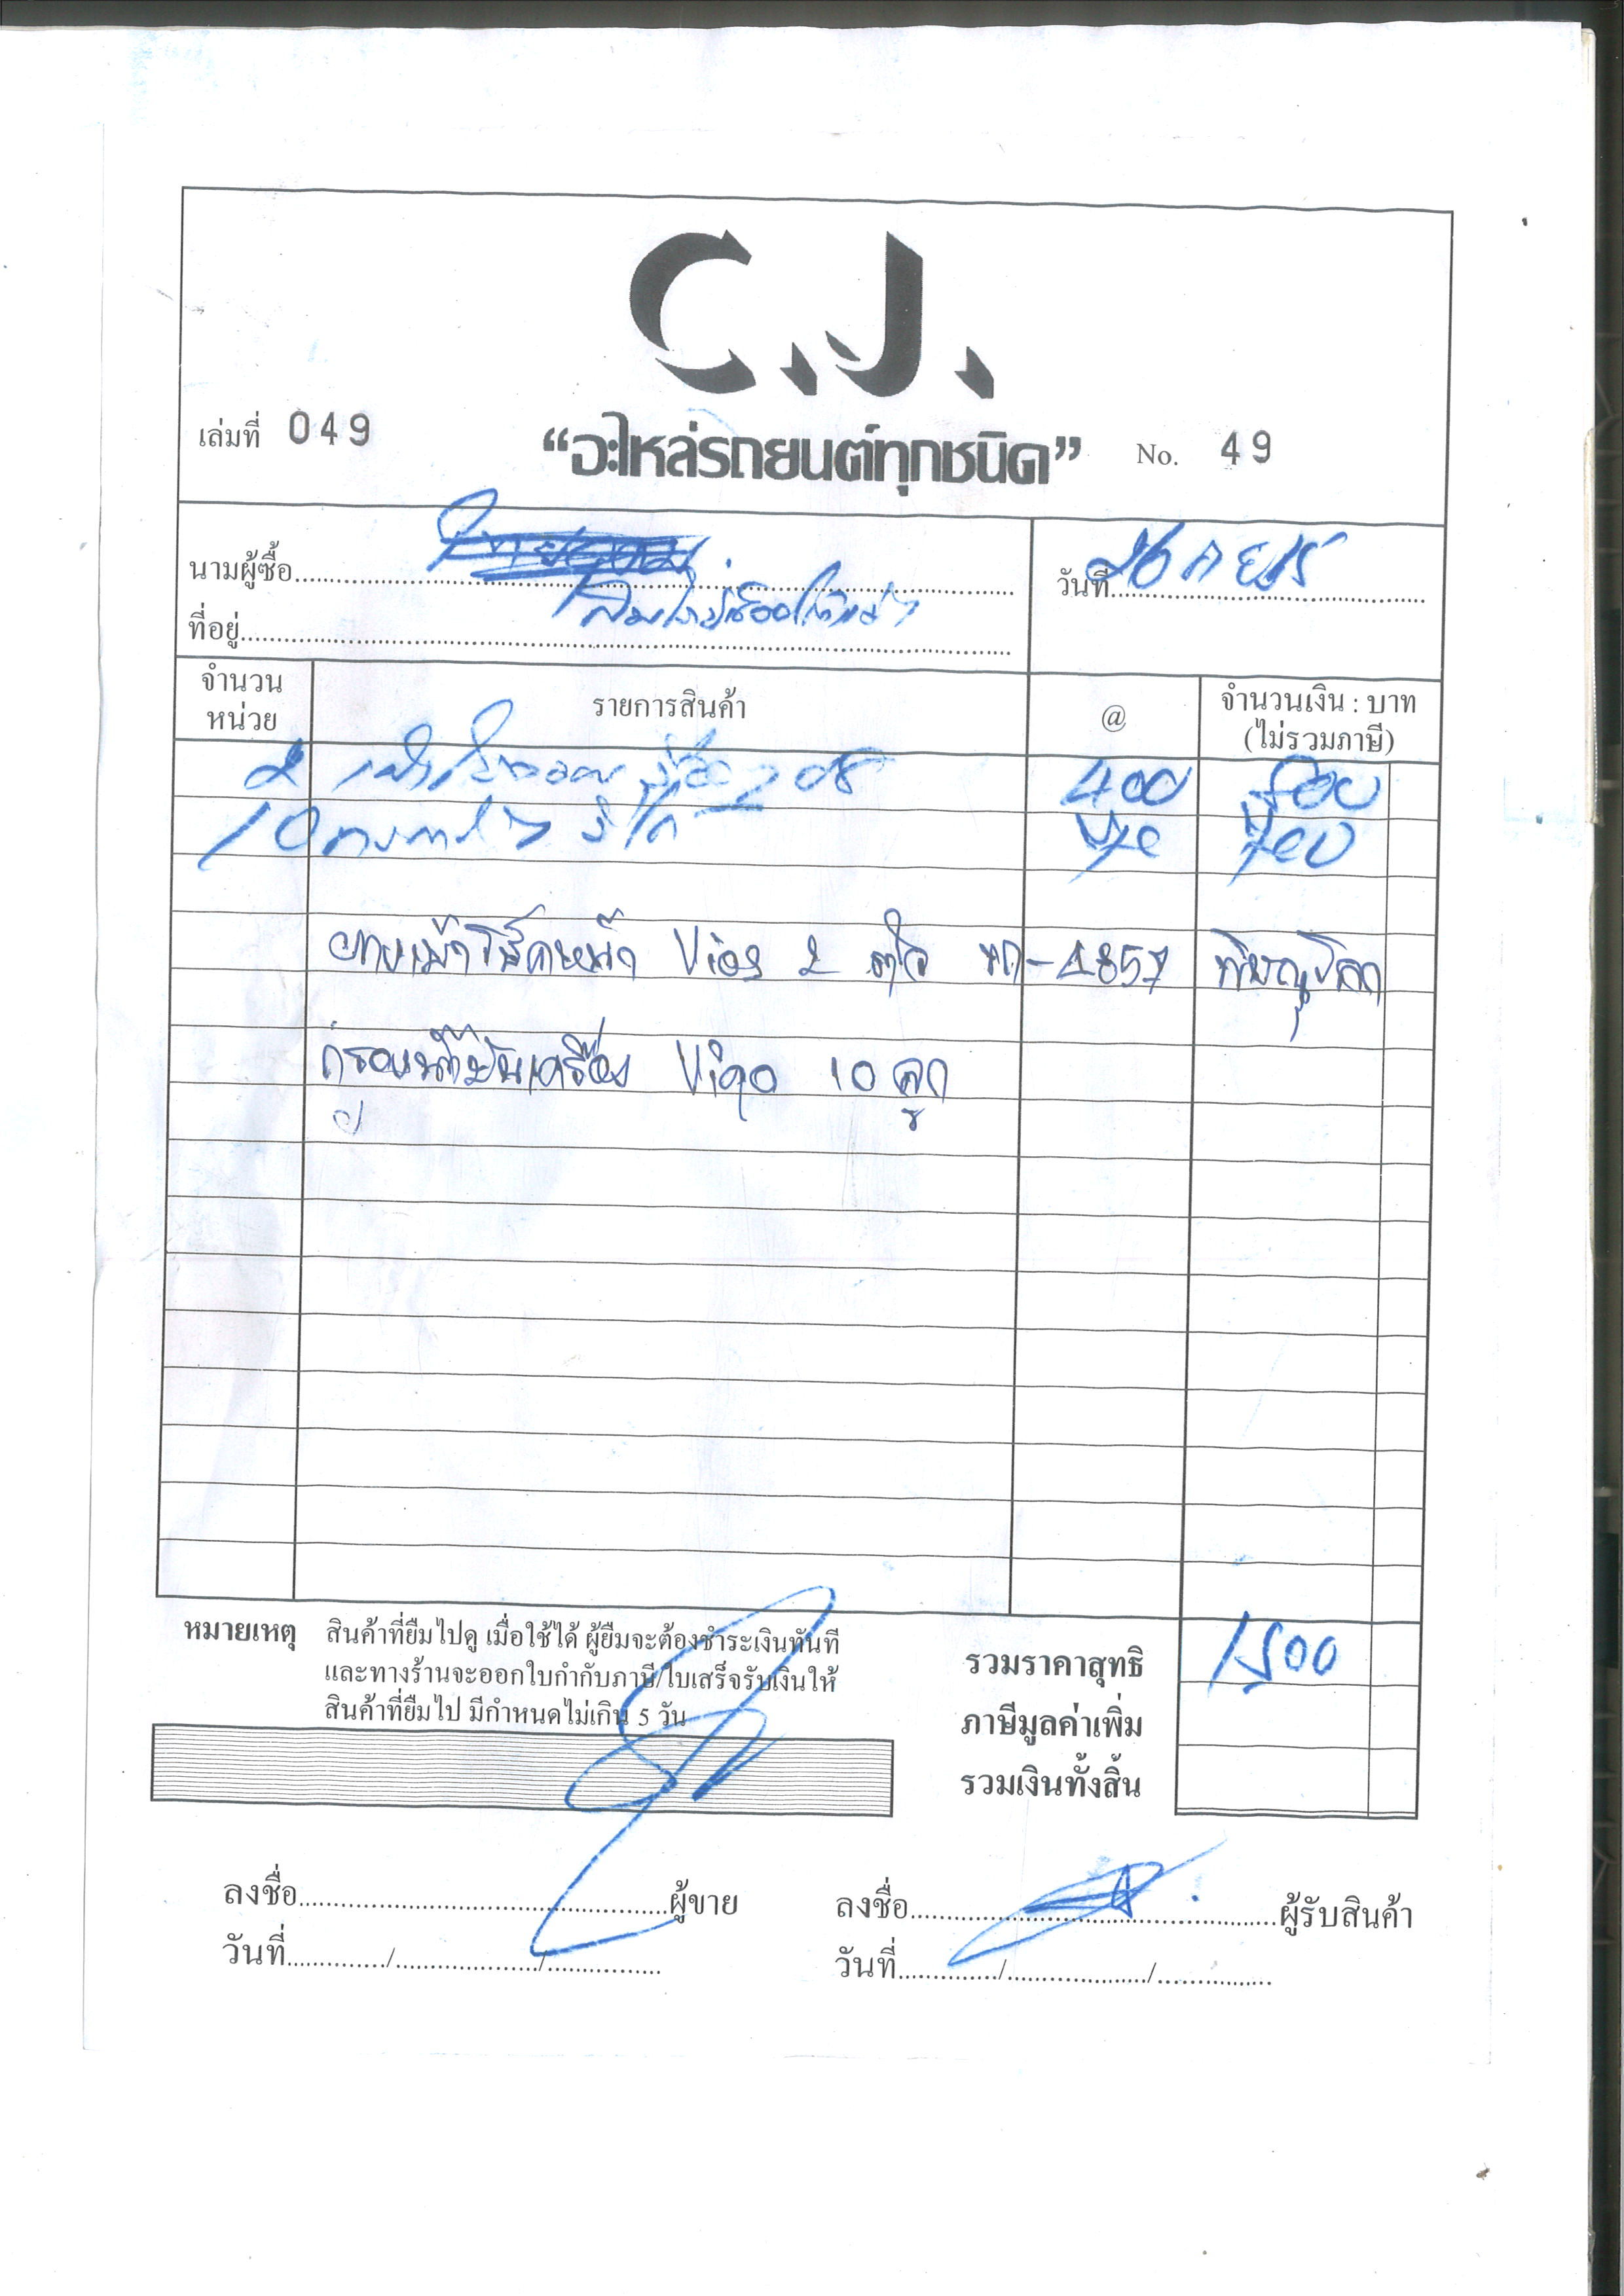 C.J.
เล่มที่ 049
“อะไหล่รถยนต์ทุกชนิด”
No. 49
นามผู้ซื้อ
วันที่ 26
ที่อยู่
จำนวน หน่วย รายการสินค้า @ จำนวนเงิน : บาท (ไม่รวมภาษี)
2 400 800
10
ยางเบ้าโช้คหน้า Vios 2 ตัว - 4857 พิษณุโลก
กรองน้ำมันเครื่อง Vigo 10 ลูก
หมายเหตุ สินค้าที่ยืมไปดู เมื่อใช้ได้ ผู้ยืมจะต้องชำระเงินทันที
และทางร้านจะออกใบกำกับภาษี/ใบเสร็จรับเงินให้
สินค้าที่ยืมไป มีกำหนดไม่เกิน 5 วัน
รวมราคาสุทธิ 1500
ภาษีมูลค่าเพิ่ม
รวมเงินทั้งสิ้น
ลงชื่อ ผู้ขาย
วันที่ / /
ลงชื่อ ผู้รับสินค้า
วันที่ / /